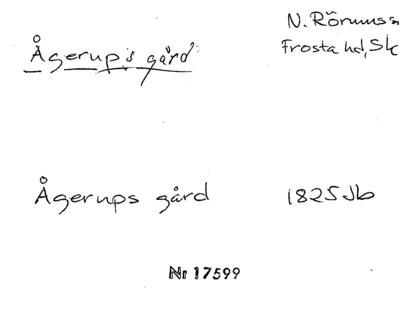 N. Rörums sn
Frosta hd, Sk
Ågerups gård
Ågerups gård 1825 Jb
Nr 17599